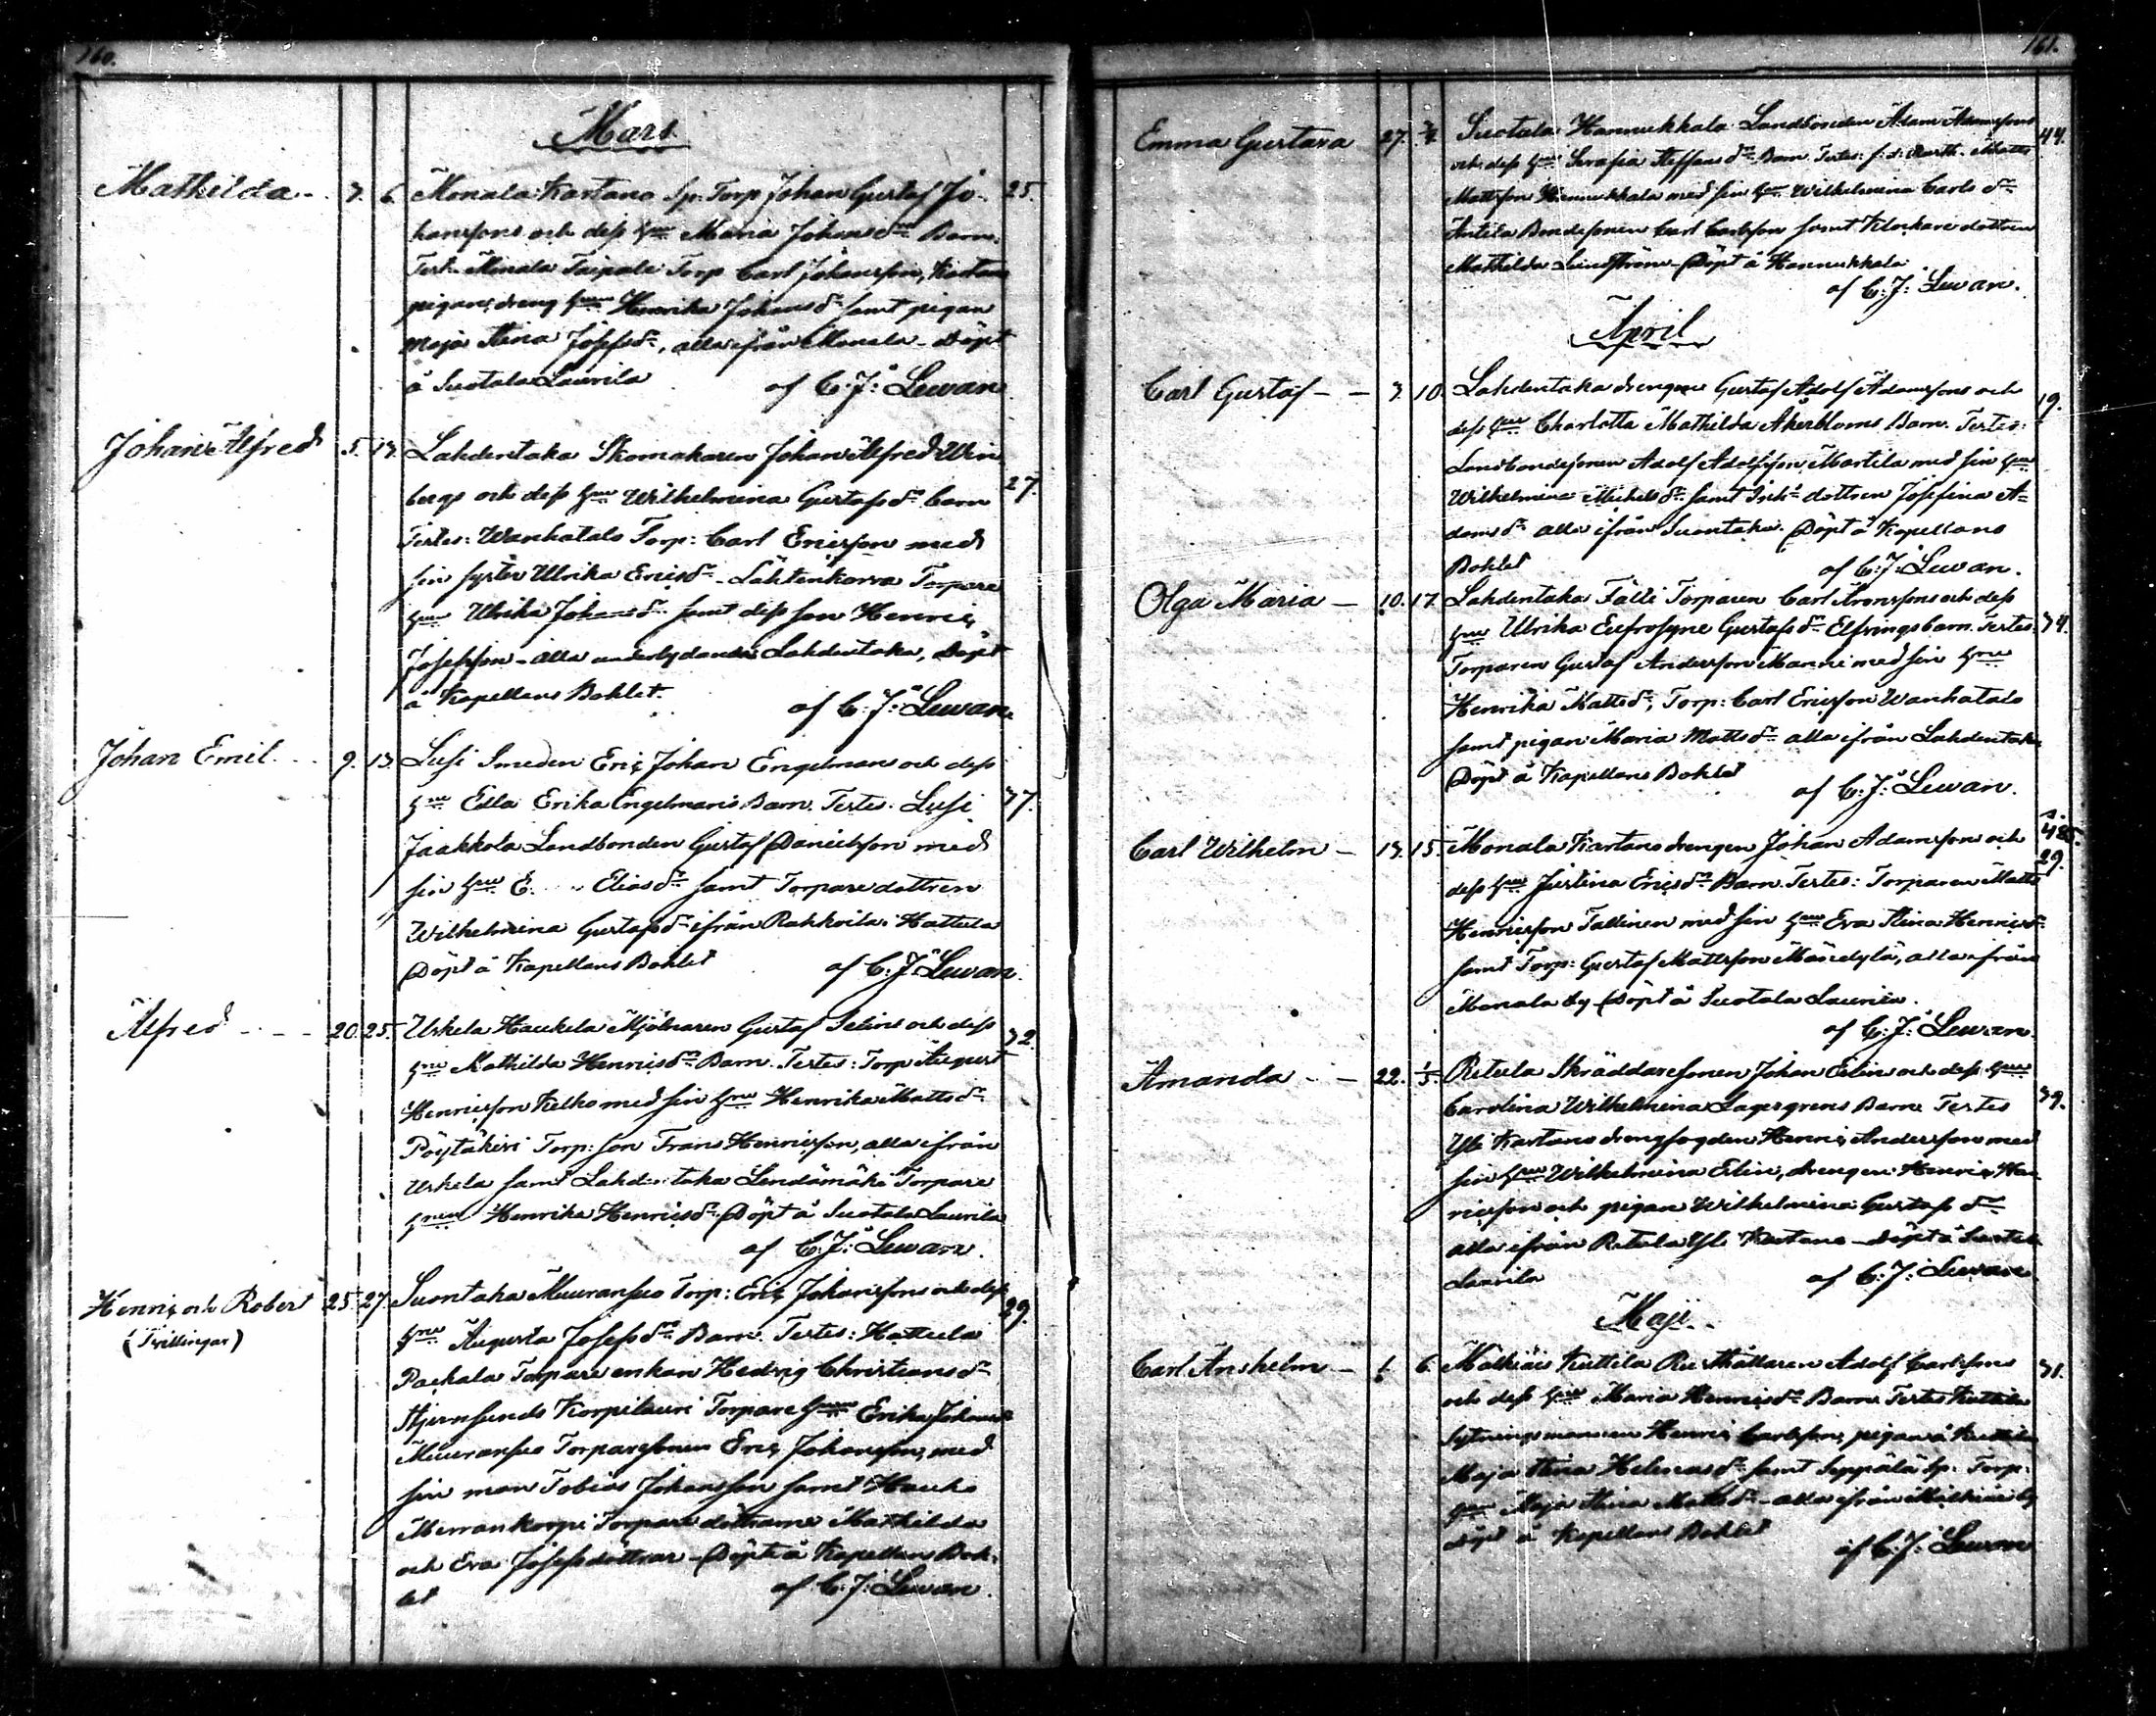 160.
Mars
Mathilda 3. 6. Monala Kartano Sp. Torp Johan Gustaf Jo- 25.
hanssons och dess Hru Maria Johansdr Barn.
Test. Monala Taipale Torp Carl Johansson, Kartano
drengHru Henrika Johansdr samt pigan
Maja Stina Josefsdr, alla ifrån Monala - Döpt
å Suotala Laurila af C: J: Lewan
Johan Alfred 5. 13. Lahdentaka Skomakaren Johan Alfred Win
bergs och dess Hru Wilhelmina Gustafsdr barn 27.
Testes: Wanhatalo Torp: Carl Ericsson med
sin syster Ulrika Ericsdr Lähtenkorva Torpare
Hru Ulrika Johansdr samt dess son Henric
Josefsson - alla underlydande Lahdentaka, Döpt
å Kapellans Bohlet. af C: J: Lewan
Johan Emil 9. 13. Lusi Smeden Eric Johan Engelmans och dess
Hru Edla Erika Engelmans Barn. Testes. Lusi 37.
Jaakkola Landbonden Gustaf Danielsson med
sin Hru E. Eliasdr samt Torparedottren
Wilhelmina Gustafsdr ifrån Rahkoila Hattula
Döpt å Kapellans Bohlet af C: J: Lewan.
Alfred 20. 25. Urhela Haukela Mjölnaren Gustaf Selins och dess 32.
Hru Mathilda Henricsdr Barn. Testes: Torp August
Henricsson Kelho med sin Hru Henrika Mattsdr
Pöytäkivi Torp: son Frans Henricsson, alla ifrån
Urhela samt Lahdentaka Lendämäki Torpare
Hrun Henrika Henricsdr. Döpt å Suotala Laurila
af C: J: Lewan.
Henric och Robert 25. 27. Suontaka Muuransuo Torp: Eric Johanssons och dess 29.
(Tvillingar) Hru Augusta Josefsdr Barn. Testes: Hattula
Packala Torpare enkan Hedvig Christiansdr
Stjernsunds Korpilauri Torpare Hrun Erika Johansdr
Muuransuo Torparesonen Eric Johansson, med
sin man Tobias Johansson samt Hauho
Merrankorpi Torpare döttrarne Mathilda
och Eva Josefsdöttrar - Döpte å Kapellans Boh-
let af C: J: Lewan.
161.
Emma Gustava 27. Suotala Hannukkala Landbonden Adam Adamssons 44.
och dess Hru Serafia Steffansdr Barn. Testes: f. d. Matts
Mattsson Hannukkala med sin Hru Wilhelmina Carlsdr
Antila Bondesonen Carl Carlsson samt Klockaredottren
Mathilda Lindström - Döpt å Hannukkala
af C: J: Lewan.
April
Carl Gustaf 3. 10. Lahdentaka drengen Gustaf Adolf Adamssons och
dess Hru Charlotta Mathilda Åkerbloms Barn. Testes: 19.
Landbondesonen Adolf Adolfsson Martila med sin Hru
Wilhelmina Michelsdr samt Inh: dottren Josefina A=
damsdr alla ifrån Suontaka. Döpt å Kapellans
Bohlet af C: J: Lewan.
Olga Maria 10. 17. Lahdentaka Fälli Torparen Carl Aronssons och dess
Hru Ulrika Eufrosyne Gustafsdr Elfrings barn. Testes: 34.
Torparen Gustaf Andersson Manni med sin Hru
Henrika Mattsdr, Torp: Carl Ericsson Wanhatalo
samt pigan Maria Mattsdr alla ifrån Lahdentaka
Döpt å Kapellans Bohlet af C: J: Lewan.
Carl Wilhelm 13. 15. Monala Kartano drengen Johan Adamssons och 485.
dess Hru Justina Ericsdr Barn. Testes: Torparen Matts 29.
Henricsson Tallinen med sin Hru Eva Stina Henricsdr
samt Torp: Gustaf Mattsson Mäncdylä, alla ifrån
Monala by - Döpt å Suotala Laurila.
af C: J: Lewan.
Amanda 22. 1/5. Retula Skräddaresonen Johan Elins och dess Hru
Carolina Wilhelmina Lagergrens Barn Testes 39.
Yli Kartano drengfogden Henric Andersson med
sin Hru Wilhelmina Elin, drengen Henric Hen-
ricsson och pigan Wilhelmina Gustafsdr
alla ifrån Retula Yli Kartano - Döpt å Suotala
Laurila af C: J: Lewan.
Maji
Carl Anshelm 1. 6. Mälkiäis Kuttila Rusthållaren Adolf Carlssons 31.
och dess Hru Maria Henricsdr Barn. Testes Kuttila
Sytningsmannen Henric Carlsson, pigan å Kuttila
Maja Stina Helenasdr samt Seppälä Sp. Torp.
Hru Maja Stina Mattsdr - alla ifrån Mälkiäis by
Döpt å Kapellans Bohlet af C: J: Lewan